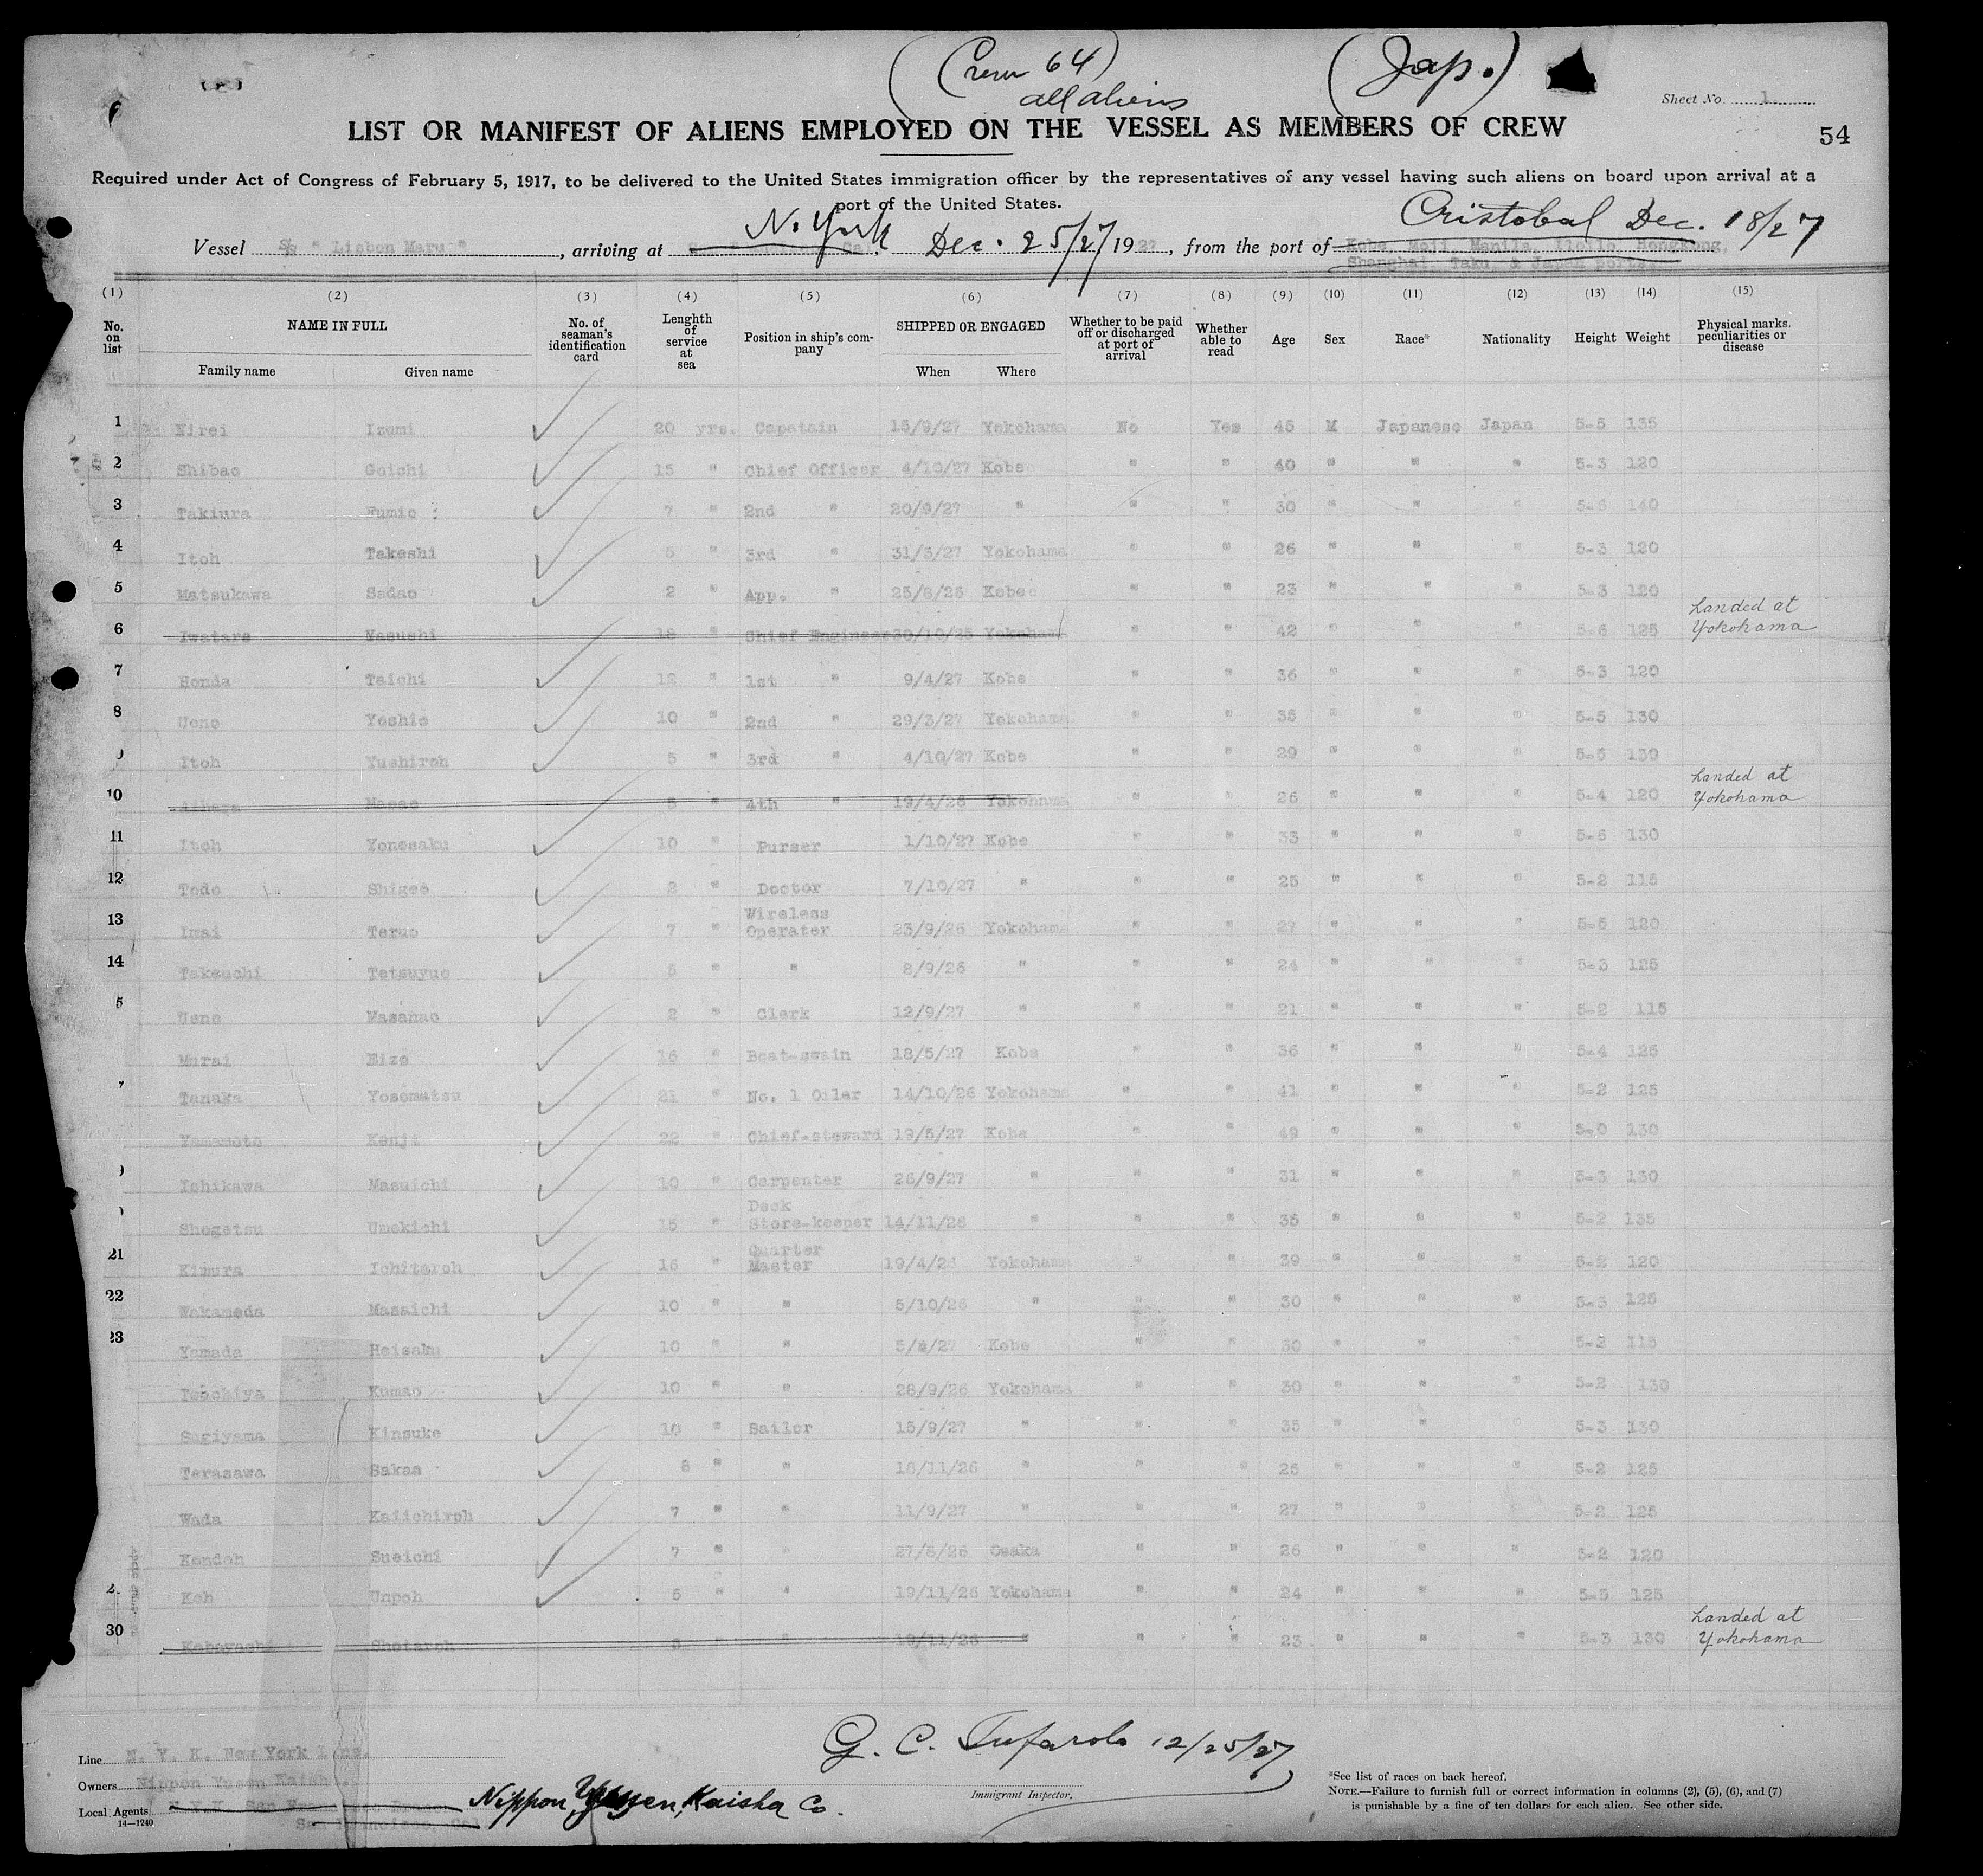 (Crew 64)
all aliens
(Jap.)
Sheet No. 1
LIST OR MANIFEST OF ALIENS EMPLOYED ON THE VESSEL AS MEMBERS OF CREW
54
Required under Act of Congress of February 5, 1917, to be delivered to the United States immigration officer by the representatives of any vessel having such aliens on board upon arrival at a
port of the United States.
N. York Dec. 25/27 Cristobal Dec. 18/27
Vessel S/S "Lisbon Maru", arriving at 1927, from the port of Kobe, Moji, Manila, Iloilo, Hongkong,
Shanghai, Taku, & Japan ports.
(1) (2) (3) (4) (5) (6) (7) (8) (9) (10) (11) (12) (13) (14) (15)
No. on list NAME IN FULL No. of seaman's identification card Lenghth of service at sea Position in ship's company SHIPPED OR ENGAGED Whether to be paid off or discharged at port of arrival Whether able to read Age Sex Race* Nationality Height Weight Physical marks. peculiarities or disease
Family name Given name When Where
1 Nirei Izumi 20 yrs. Capatain 15/9/27 Yokohama No Yes 45 M Japanese Japan 5-5 135
2 Shibao Goichi 15 " Chief Officer 4/10/27 Kobe " " 40 " " " 5-3 120
3 Takiura Fumio 7 " 2nd " 20/9/27 " " " 30 " " " 5-5 140
4 Itoh Takeshi 5 " 3rd " 31/3/27 Yokohama " " 26 " " " 5-3 120
5 Matsukawa Sadao 2 " App. " 25/8/26 Kobe " " 23 " " " 5-3 120
6 Iwatare Yasushi 18 " Chief Engineer 30/10/25 Yokohama " " 42 " " " 5-6 125 Landed at Yokohama
7 Honda Taichi 12 " 1st " 9/4/27 Kobe " " 36 " " " 5-3 120
8 Ueno Yoshio 10 " 2nd " 29/3/27 Yokohama " " 35 " " " 5-5 130
Itoh Yushiroh 5 " 3rd " 4/10/27 Kobe " " 29 " " " 5-5 130
10 Masao 5 " 4th " 19/4/26 Yokohama " " 26 " " " 5-4 120 Landed at Yokohama
11 Itoh Yonosaku 10 " Purser 1/10/27 Kobe " " 33 " " " 5-6 130
12 Todo Shigeo 2 " Doctor 7/10/27 " " " 25 " " " 5-2 115
13 Imai Teruo 7 " Wireless Operater 23/9/26 Yokohama " " 27 " " " 5-5 120
14 Takeuchi Tetsuyuo 5 " " 8/9/26 " " " 24 " " " 5-3 125
5 Ueno Masanao 2 " Clerk 12/9/27 " " " 21 " " " 5-2 115
Murai Eizo 16 " Boat-swain 18/5/27 Kobe " " 36 " " " 5-4 125
Tanaka Yosomatsu 21 " No. 1 Oiler 14/10/26 Yokohama " " 41 " " " 5-2 125
Yamamoto Kenji 22 " Chief-steward 19/5/27 Kobe " " 49 " " " 5-0 130
Ishikawa Masuichi 10 " Carpenter 26/9/27 " " " 31 " " " 5-3 130
Shogetsu Umekichi 15 " Deck Store-keeper 14/11/26 " " " 35 " " " 5-2 135
21 Kimura Ichitaroh 16 " Quarter Master 19/4/26 Yokohama " " 39 " " " 5-2 120
22 Wakameda Masaichi 10 " " 5/10/26 " " " 30 " " " 5-3 125
23 Yamada Heisaku 10 " " Kobe " " 30 " " " 5-2 115
Tsuchiya Kumao 10 " " 28/9/26 Yokohama " " 30 " " " 5-2 130
Sugiyama Kinsuke 10 " Sailor 15/9/27 " " " 35 " " " 5-3 130
Terasawa Sakae 8 " " 18/11/26 " " " 25 " " " 5-2 125
Wada Kaiichiroh 7 " " 11/9/27 " " " 27 " " " 5-2 125
Kondoh Sueichi 7 " " 27/5/26 Osaka " " 26 " " " 5-2 120
2 Koh Unpoh 5 " " 19/11/26 Yokohama " " 24 " " " 5-5 125
30 Kobayashi Shotaroh " " 19/11/26 " " " 23 " " " 5-3 130 Landed at Yokohama
G. C. Tufarolo 12/25/27
Line N. Y. K. New York Line.
Owners Nippon Yusen Kaisha
Local Agents Nippon Yusen Kaisha Co.
14—1240
Immigrant Inspector.
*See list of races on back hereof.
NOTE.—Failure to furnish full or correct information in columns (2), (5), (6), and (7)
is punishable by a fine of ten dollars for each alien. See other side.